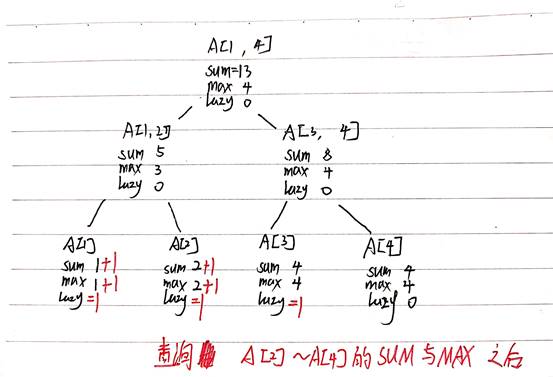 A[1, 4]
sum=13
max 4
lazy 0
A[1,2]
sum 5
max 3
lazy 0
A[3, 4]
sum 8
max 4
lazy 0
A[1]
sum 1+1
max 1+1
lazy=1
A[2]
sum 2+1
max 2+1
lazy=1
A[3]
sum 4
max 4
lazy=1
A[4]
sum 4
max 4
lazy 0
查询 A[2]~A[4]的SUM与MAX 之后